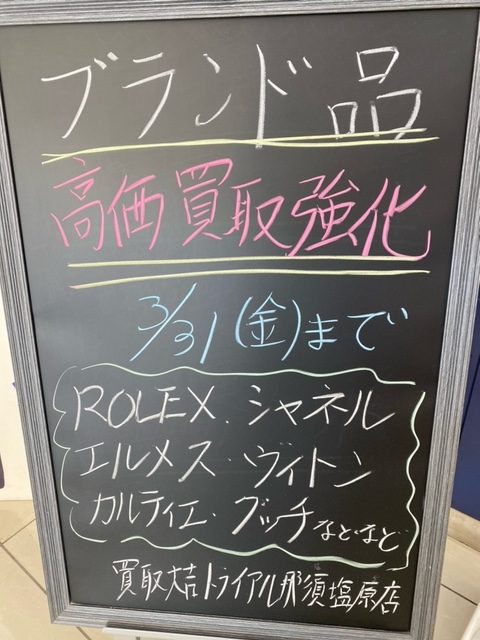 ブランド品
高価買取強化
3/31(金)まで
ROLEX.シャネル
エルメス・ヴィトン
カルティエ・グッチなどなど
買取大吉トライアル那須塩原店